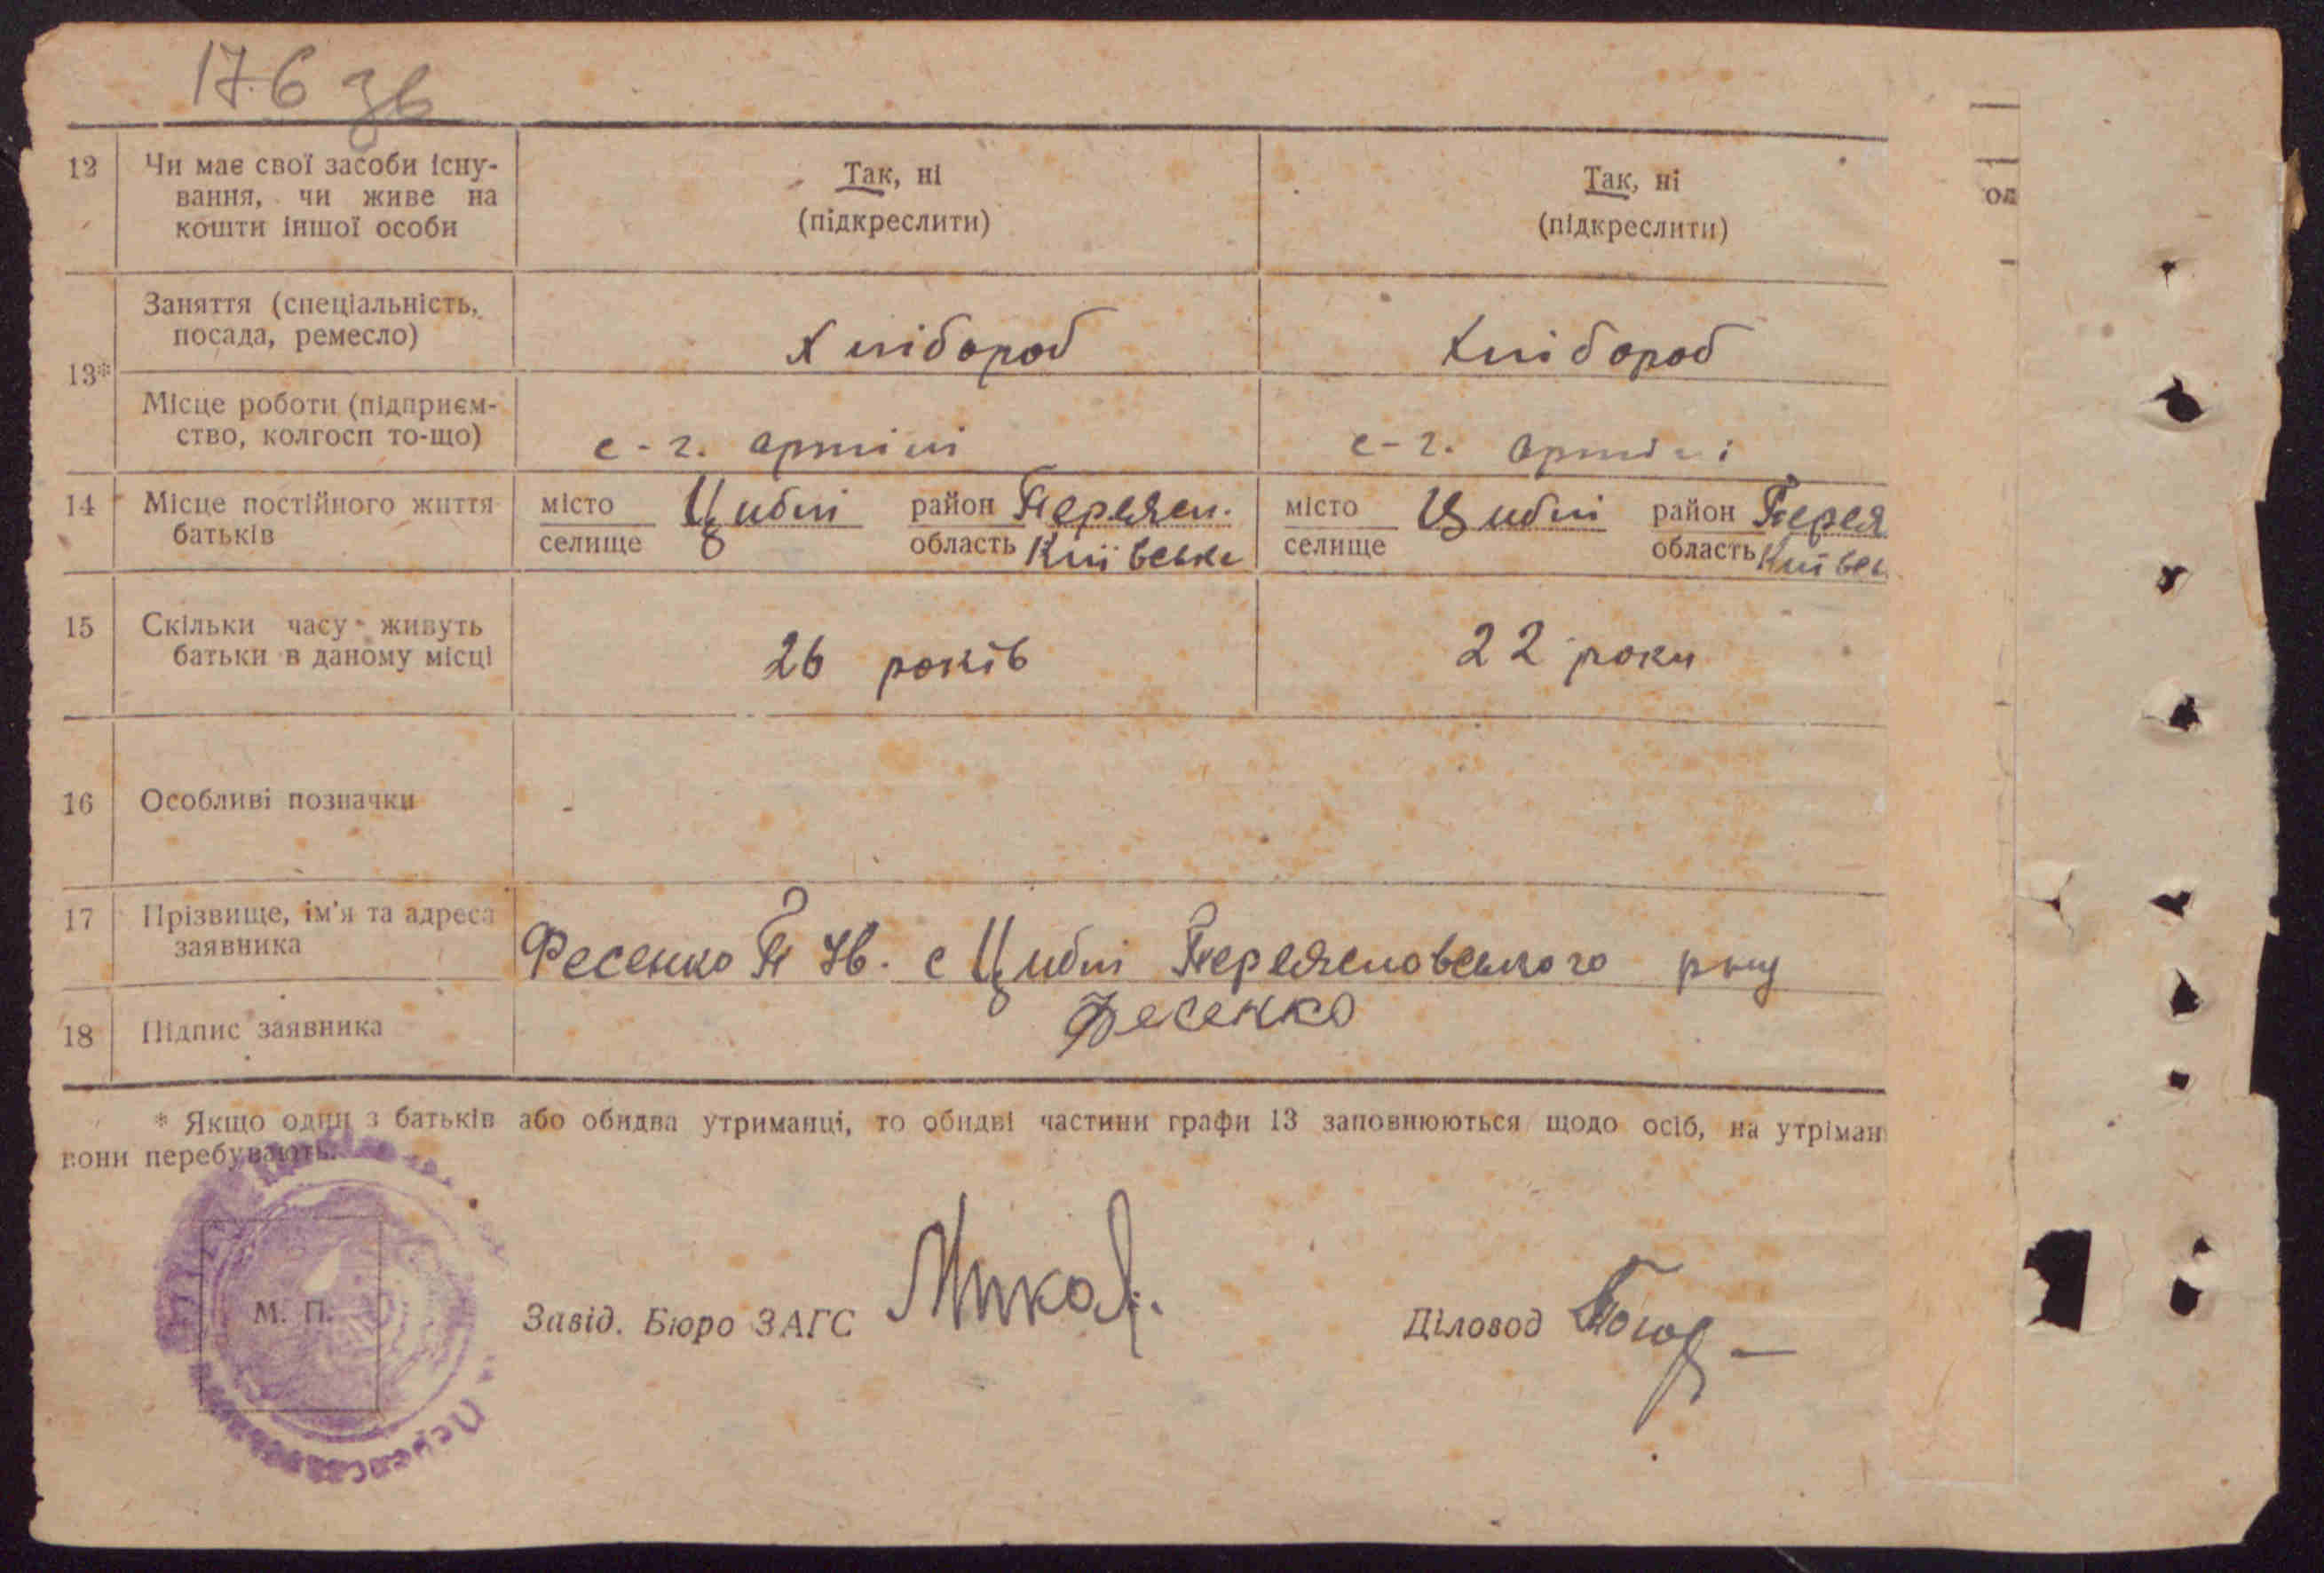 176 зв
12 Чи має свої засоби існу- Так, ні Так, ні
вання, чи живе на (підкреслити) (підкреслити)
кошти іншої особи
13* Заняття (спеціальність, Хлібороб Хлібороб
посада, ремесло)
Місце роботи (підприєм- с-г. артілі с-г. артілі
ство, колгосп то-що)
14 Місце постійного життя місто Циблі район Переясл. місто Циблі районПерея
батьків селище область Київська селище область Київсь
15 Скільки часу живуть 26 років 22 роки
батьки в даному місці
16 Особливі позначки
17 Прізвище, ім'я та адреса Фесенко П Ів. с Циблі Переяславського р-ну
заявника
18 Підпис заявника Фесенко
* Якщо один з батьків або обидва утриманці, то обидві частини графи 13 заповнюються щодо осіб, на утріман
вони перебувають.
М. П.
Завід. Бюро ЗАГС
Діловод
од